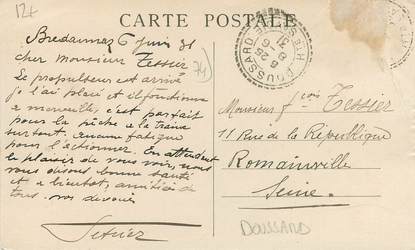 12+
CARTE POSTALE
Bredannaz 6 Juin 31
cher Monsieur Tessier
Le propulseur est arrivé
je l'ai placé et il fonctionne
a merveille, c'est parfait
pour la pêche a la traine
surtout. aucune fatigue
pour l'actionner. En attendant
le plaisir de vous voir, nous
vous disons bonne santé
et a bientot, amitiés de
tous. vos devoués
74
DOUSSARD
Hte S
Monsieur fçois Tessier
11 Rue de la République
Romainville
Seine.
DOUSSARD